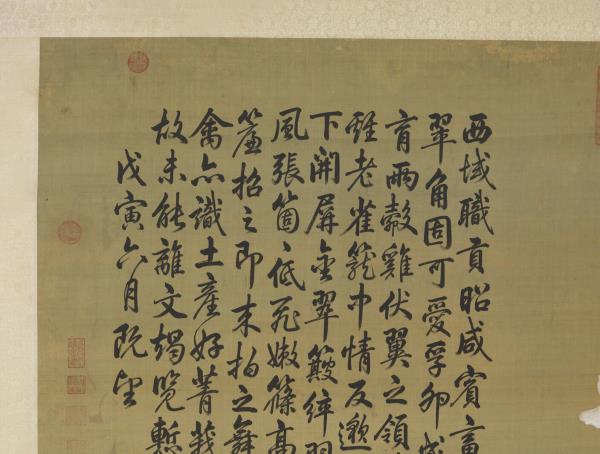 西域職貢昭咸賓畜
翠角固可愛孚卵成
育兩鷇雞伏翼之領
雖老雀籠中情反邈
下開屏金翠簸綷羽
風張箇〻低花嫩篠高
簷招之即來拍之舞
禽亦識土產好菁莪
故未能離文揭覽慙
戊寅六月既望